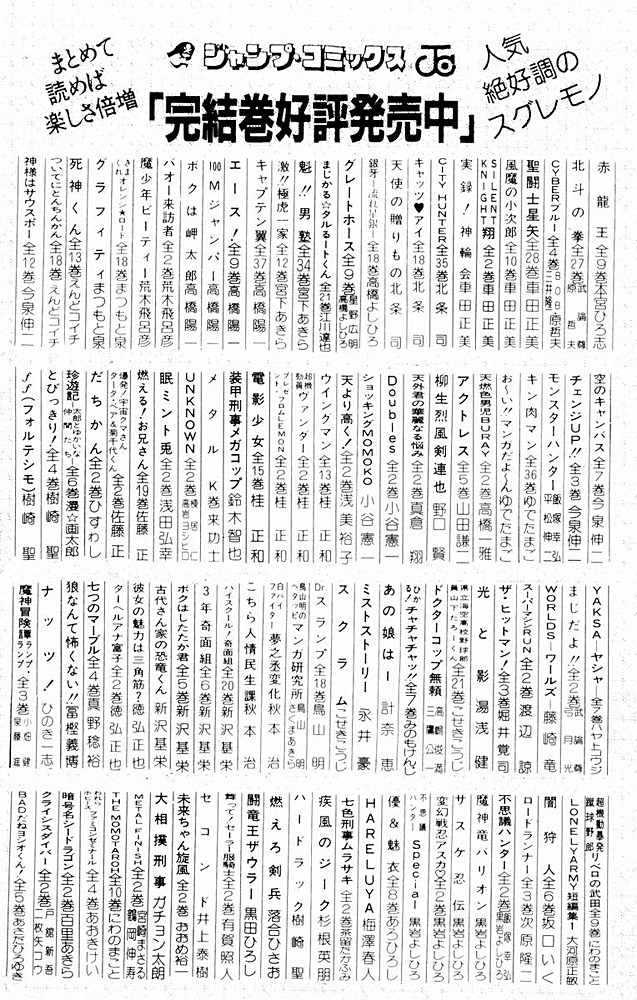 まとめて
読めば
楽しさ倍増
ジャンプ・コミックス
人気
絶好調の
スグレモノ
「完結巻好評発売中」
赤龍王 全9巻 本宮ひろ志
北斗の拳 全27巻 武論尊 原哲夫
CYBERブルー 全4巻 原哲夫
聖闘士星矢 全28巻 車田正美
風魔の小次郎 全10巻 車田正美
SILENT KNIGHT翔 全2巻 車田正美
実録!神輪会 車田正美
CITY HUNTER 全35巻 北条司
キャッツ♥アイ 全18巻 北条司
天使の贈りもの 北条司
銀牙 -流れ星銀- 全18巻 高橋よしひろ
グレートホース 全9巻 星野広明 高橋よしひろ
まじかる☆タルるートくん 全21巻 江川達也
魁!!男塾 全34巻 宮下あきら
激!!極虎一家 全12巻 宮下あきら
キャプテン翼 全37巻 高橋陽一
エース! 全9巻 高橋陽一
100Mジャンパー 高橋陽一
ボクは岬太郎 高橋陽一
バオー来訪者 全2巻 荒木飛呂彦
魔少年ビーティー 荒木飛呂彦
きまぐれオレンジ★ロード 全18巻 まつもと泉
グラフィティ まつもと泉
死神くん 全13巻 えんどコイチ
ついでにとんちんかん 全18巻 えんどコイチ
神様はサウスポー 全12巻 今泉伸二
空のキャンバス 全7巻 今泉伸二
チェンジUP!! 全3巻 今泉伸二
モンスターハンター 飯塚幸弘 平松伸二
キン肉マン 全36巻 ゆでたまご
おーい!!マンガだよ〜ん ゆでたまご
天燃色男児BURAY 全2巻 高橋一雅
アクトレス 全5巻 山田謙二
柳生烈風剣連也 野口賢
天外君の華麗なる悩み 全2巻 真倉翔
Doubles 全2巻 小谷憲一
ショッキングMOMOKO 小谷憲一
天より高く! 全2巻 浅美裕子
ウイングマン 全13巻 桂正和
超機動員ヴァンダー 全2巻 桂正和
プレゼント・フロムLEMON 全2巻 桂正和
電影少女 全15巻 桂正和
装甲刑事メガコップ 鈴木智也
メタルK 巻来功士
UNKNOWN 全2巻 榛居 高岩ヨシヒロ
眠兎 全2巻 浅田弘幸
燃える!お兄さん 全19巻 佐藤正
爆発!宇宙クマさん ターター・ベアー&菊千代くん 全2巻 佐藤正
だちかん 全2巻 ひすわし
珍遊記 -太郎とゆかいな仲間たち- 全6巻 漫☆画太郎
とびっきり! 全4巻 樹崎聖
ff(フォルテシモ) 樹崎聖
YAKSA-ヤシャ- 全7巻 ハヤトコウジ
まじだよ!! 全2巻 武論尊 弓月光
WORLDS-ワールズ- 藤崎竜
スーパーマシンRUN 全2巻 渡辺諒
ザ・ヒットマン! 全3巻 堀井覚司
光と影 湯浅健
県立海空高校野球部員山下たろーくん 全21巻 こせきこうじ
ドクターコップ無頼 高嶋俊満 三鷹公一
ひかる!チャチャチャッ!! 全7巻 みのもけんじ
あの娘は… 計奈恵
ミストストーリー 永井豪
スクラム こせきこうじ
Dr.スランプ 全18巻 鳥山明
鳥山明のヘタッピマンガ研究所 鳥山明 さくまあきら
白バイファイター夢之丞変化 秋本治
こちら人情民生課 秋本治
ハイスクール!奇面組 全20巻 新沢基栄
3年奇面組 全6巻 新沢基栄
ボクはしたたか君 全5巻 新沢基栄
古代さん家の恐竜くん 新沢基栄
彼女の魅力は三角筋? 徳弘正也
ターヘルアナ富子 全2巻 徳弘正也
七つのマーブル 全4巻 真野稔裕
狼なんて怖くない!! 富樫義博
ナッツ! ひのき一志
魔神冒険譚ランプ・ランプ 全3巻 小畑健 泉藤進
超機動暴発蹴球野郎 リベロの武田 全9巻 にわのまこと
LONELY ARMY短編集1 大河原正敏
闇狩人 全6巻 坂口いく
ロードランナー 全3巻 次原隆二
不思議ハンター 全2巻 飯塚幸弘 黒岩よしひろ
魔神竜バリオン 黒岩よしひろ
サスケ忍伝 黒岩よしひろ
変幻戦忍アスカ 全2巻 黒岩よしひろ
不思議ハンターSpecial 黒岩よしひろ
優&魅衣 全8巻 あろひろし
HARELUYA 梅澤春人
七色刑事ムラサキ 全2巻 茶留たかふみ
疾風のジーク 杉根英明
ハードラック 樹崎聖
燃えろ剣兵 落合ひさお
闘竜王ザウラー 黒田ひろし
舞って!セーラー服騎士 全2巻 有賀照人
セコンド 井上泰樹
未来ちゃん旋風 全2巻 おおめ裕一
大相撲刑事 ガチョン太朗
METAL FINISH 全2巻 宮崎まさる 鶴岡伸寿
THE MOMOTAROH 全10巻 にわのまこと
わたるファミコン・ゼミナール 全4巻 あおきけい
暗号名シードラゴン 全2巻 百里あきら
クライシスダイバー 全2巻 戸舘新吾 二枚矢コウ
BADだねヨシオくん! 全5巻 あさだひろゆき